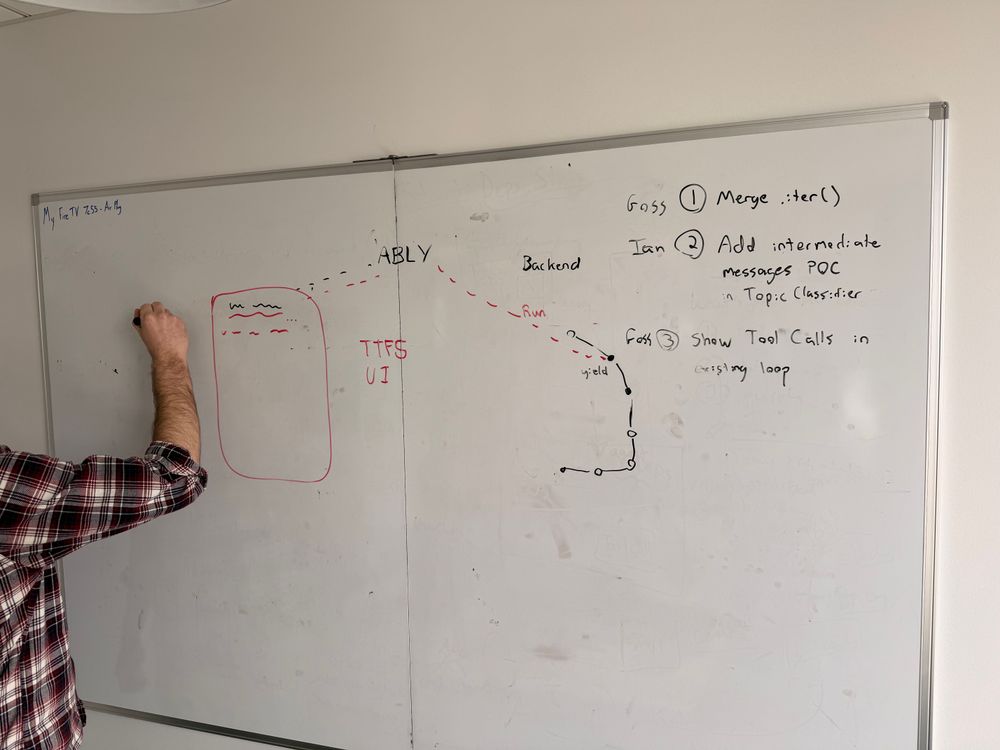 My Fire TV
ABLY
Backend
Run
yield
TTFS
UI
Goss ① Merge .iter()
Ian ② Add intermediate
messages POC
in Topic Classifier
Goss ③ Show Tool Calls in
existing loop